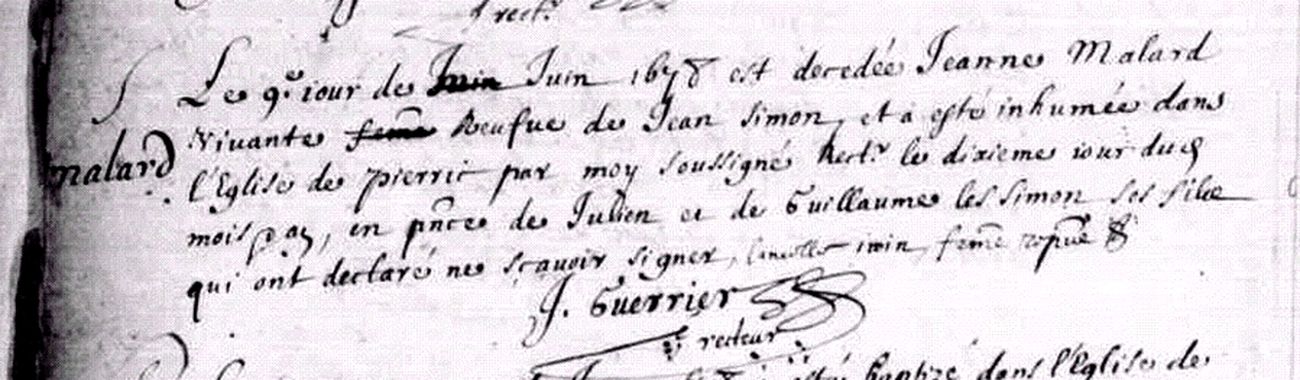 rectr
Le 9e iour de Juin Juin 1678 est decedée Jeanne Malard
malard
Vivante feme Veufue de Jean Simon, et a esté inhumée dans
l'Eglise de pierric par moy soussigné Rectr le dixieme iour dud
mois & an, en pnce de Julien et de Guillaume les Simon ses filz
qui ont declaré ne sçavoir signer, cancellé iuin, feme repué
J. Guerrier
recteur
esté baptizé dans l'Eglise de